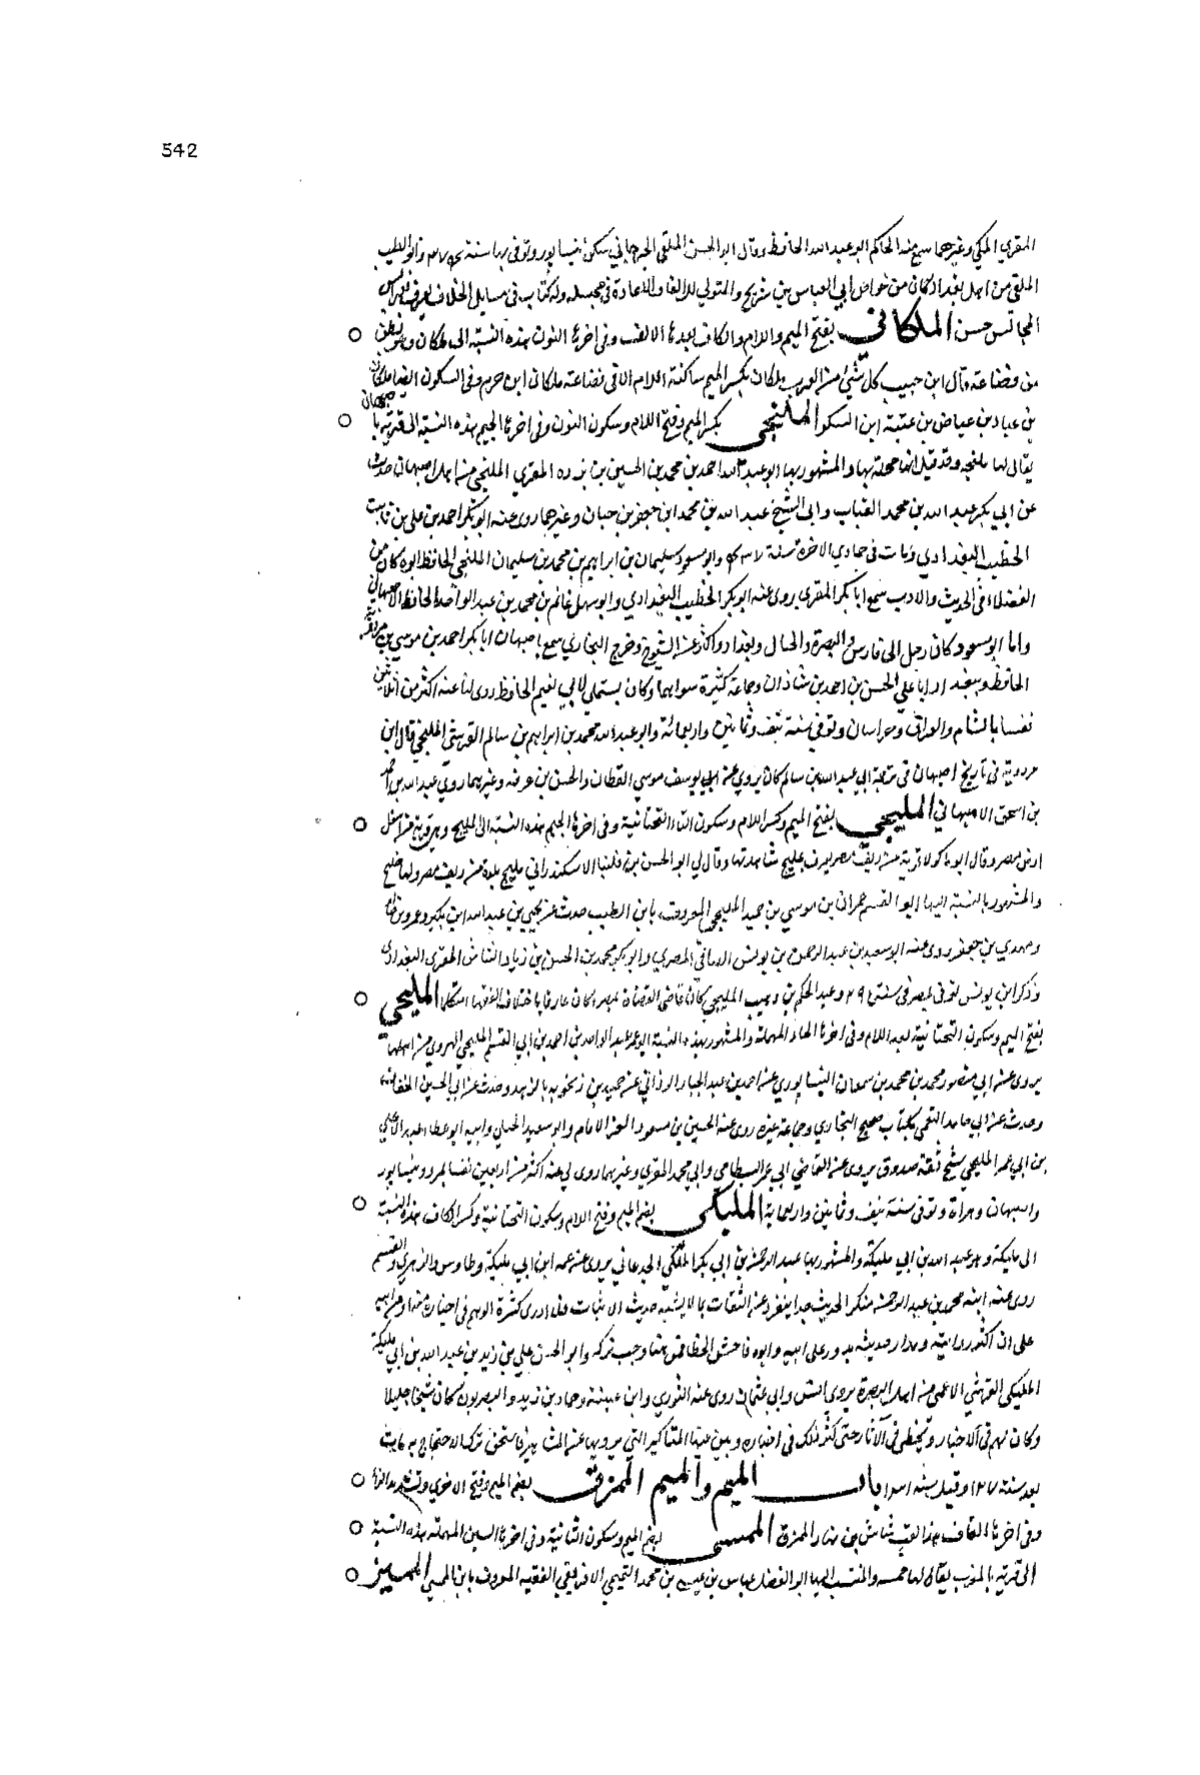 542
المقري المكي وغيرهما سمع منه الحاكم ابو عبد الله الحافظ وقال ابو الحسن الملقي الجرجاني سكن نيسابور وتوفي بها سنة وابو الطيب
الملقي من اهل بغداد كان من خواص ابي العباس بن سريج والمتولي للالقاء والاعادة في مجلسه وله كتاب في مسايل الخلاف
المجالس حسن الملكاني بفتح الميم واللام والكاف بعدها الالف وفي اخرها النون هذه النسبة الى ملكان وهو بطن
من قضاعة قال ابن حبيب كل شيء من العرب ملكان بكسر الميم ساكنة اللام الا في قضاعة ملكان ابن جرم وفي السكون ايضا ملكان
بن عباد بن عياض بن عقبة ابن السكون الملنجي بكسر الميم وفتح اللام وسكون النون وفي اخرها الجيم هذه النسبة الى قرية باصبهان
يقال لها ملنجه وقد قيل انها محلة بها والمشهور بها ابو عبد الله احمد بن محمد بن الحسين بن يزده المقري الملنجي من اهل اصبهان حدث
عن ابي بكر عبد الله بن محمد القباب وابي الشيخ عبد الله بن محمد ابن جعفر بن حيان وغيرهما روى عنه ابو بكر احمد بن علي بن ثابت
الخطيب البغدادي ومات في جمادي الاخرة سنة وابو مسعود سليمان بن ابراهيم بن محمد بن سليمان الملنجي الحافظ ابوه كان من
الفضلاء في الحديث والادب سمع ابا بكر المقري روى عنه ابو بكر الخطيب البغدادي وابو سهل غانم بن محمد بن عبد الواحد الحافظ الاصبهاني
واما ابو مسعود كان رحل الى فارس والبصرة والجبال وبغداد واكثر عن الشيوخ وخرج البخاري سمع باصبهان ابا بكر احمد بن موسى بن مردويه
الحافظ وببغداد ابا علي الحسن بن احمد بن شاذان وجماعة كثيرة سواهما وكان يستملي لابي نعيم الحافظ روى لنا عنه اكثر من ثلاثين
نفسا بالشام والعراق وخراسان وتوفي سنة نيف وثمانين واربعمائة وابو عبد الله محمد بن ابراهيم بن سالم القرشي الملنجي قال ابن
مردويه في تاريخ اصبهان في ترجمة ابي عبد الله بن سالم كان يروي عن ابي يوسف موسى القطان والحسن بن عرفه وغيرهما روى عبد الله بن احمد
بن اسحق الاصبهاني المليجي بفتح الميم وكسر اللام وسكون الياء التحتانية وفي اخرها الجيم هذه النسبة الى المليج وهي قرية من اسفل
ارض مصر وقال ابن ماكولا قرية من ريف مصر يعرف بمليج شاهدتها وقال لي ابو الحسن بن الاسكندراني مليج بلدة من ريف مصر
والمشهور بالنسبة اليها ابو القسم عمران بن موسى بن حميد المليجي المعروف بابن الطيب حدث عن يحيى بن عبد الله ابن بكير وعمرو بن خالد
ومهدي بن جعفر روى عنه ابو سعيد بن عبد الرحمن بن يونس الصدفي المصري وابو بكر محمد بن الحسن بن زياد النقاش المقري البغدادي
وذكر ابن يونس توفي بمصر في سنة وعبد الحكم بن وهيب المليجي كان قاضي القضاة بمصر وكان عارفا باختلاف الفقها متكلما المليحي
بفتح الميم وسكون التحتانية بعد اللام وفي اخرها الحاء المهملة والمشهور بهذه النسبة ابو عمر عبد الواحد بن احمد بن ابي القسم المليحي الهروي من اهلها
يروى عن ابي منصور محمد بن محمد بن سمعان النيسابوري عن احمد بن عبد الجبار الرذاني عن حميد بن زنجويه بالزهد وحدث عن ابي الحسين الخفاف
وحدث عن ابي حامد النعيمي بكتاب صحيح البخاري وجماعة غيره روى عنه الحسين بن مسعود الفرا الامام وابو سعيد وابنه ابو عطاء
بن ابي عمر المليحي شيخ ثقة صدوق يروى عن القاضي ابي عمر البسطامي وابي محمد المقري وغيرهما روى لي عنه اكثر من اربعين نفسا بمرو ونيسابور
واصبهان وهراة وتوفي سنة نيف وثمانين واربعماية المليكي بضم الميم وفتح اللام وسكون التحتانية وكسر الكاف هذه النسبة
الى مليكة وهو عبد الله بن ابي مليكة والمشهور بها عبد الرحمن بن ابي بكر المليكي الجدعاني يروى عن عمه ابن ابي مليكة وطاوس والزهري والقسم
روى عنه ابنه محمد بن عبد الرحمن منكر الحديث جدا ينفرد عن الثقات بما لا يشبه حديث الاثبات فلا ادري كثرة الوهم في اخباره منه او من ابنه
على ان اكثر روايته ومدار حديثه يدور على ابنه وابوه فاحش الخطا فمن هنا وجب تركه وابو الحسن علي بن زيد بن عبد الله بن ابي مليكة
المليكي القرشي الاعمى من اهل البصرة يروي انس وابي عثمان روى عنه الثوري وابن عيينة وحماد بن زيد والبصريون كان شيخا جليلا
وكان يهم في الاخبار ويخطي في الآثار حتى كثر ذلك في اخباره وبين فيها المناكير التي يرويها عن المشاهير فاستحق ترك الاحتجاج به مات
بعد سنة ١٢٧ وقيل سنة ١٣١ باب الميم والميم الممزق بضم الميم وفتح الاخرى وتشديد الزا
وفي اخرها القاف هذا لقب شاس بن نهار الممزق الممسي بضم الميم وسكون الثانية وفي اخرها السين المهملة هذه النسبة
الى قرية بالمغرب يقال لها ممسه والمنتسب اليها ابو الفضل عباس بن عيسى بن محمد التميمي الافريقي الفقيه المعروف بابن الممسي